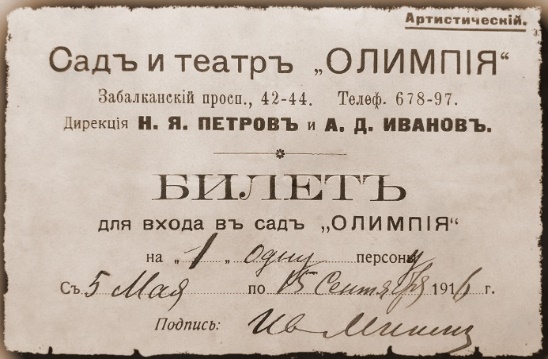 Артистическій.
Садъ и театръ „ОЛИМПІЯ“
Забалканскій просп., 42-44. Телеф. 678-97.
Дирекція Н. Я. ПЕТРОВЪ и А. Д. ИВАНОВЪ.
БИЛЕТЪ
для входа въ садъ „ОЛИМПІЯ“
на „1„ одну персону
Съ 5 Мая по 15 Сентября 1916 г.
Подпись: Ив